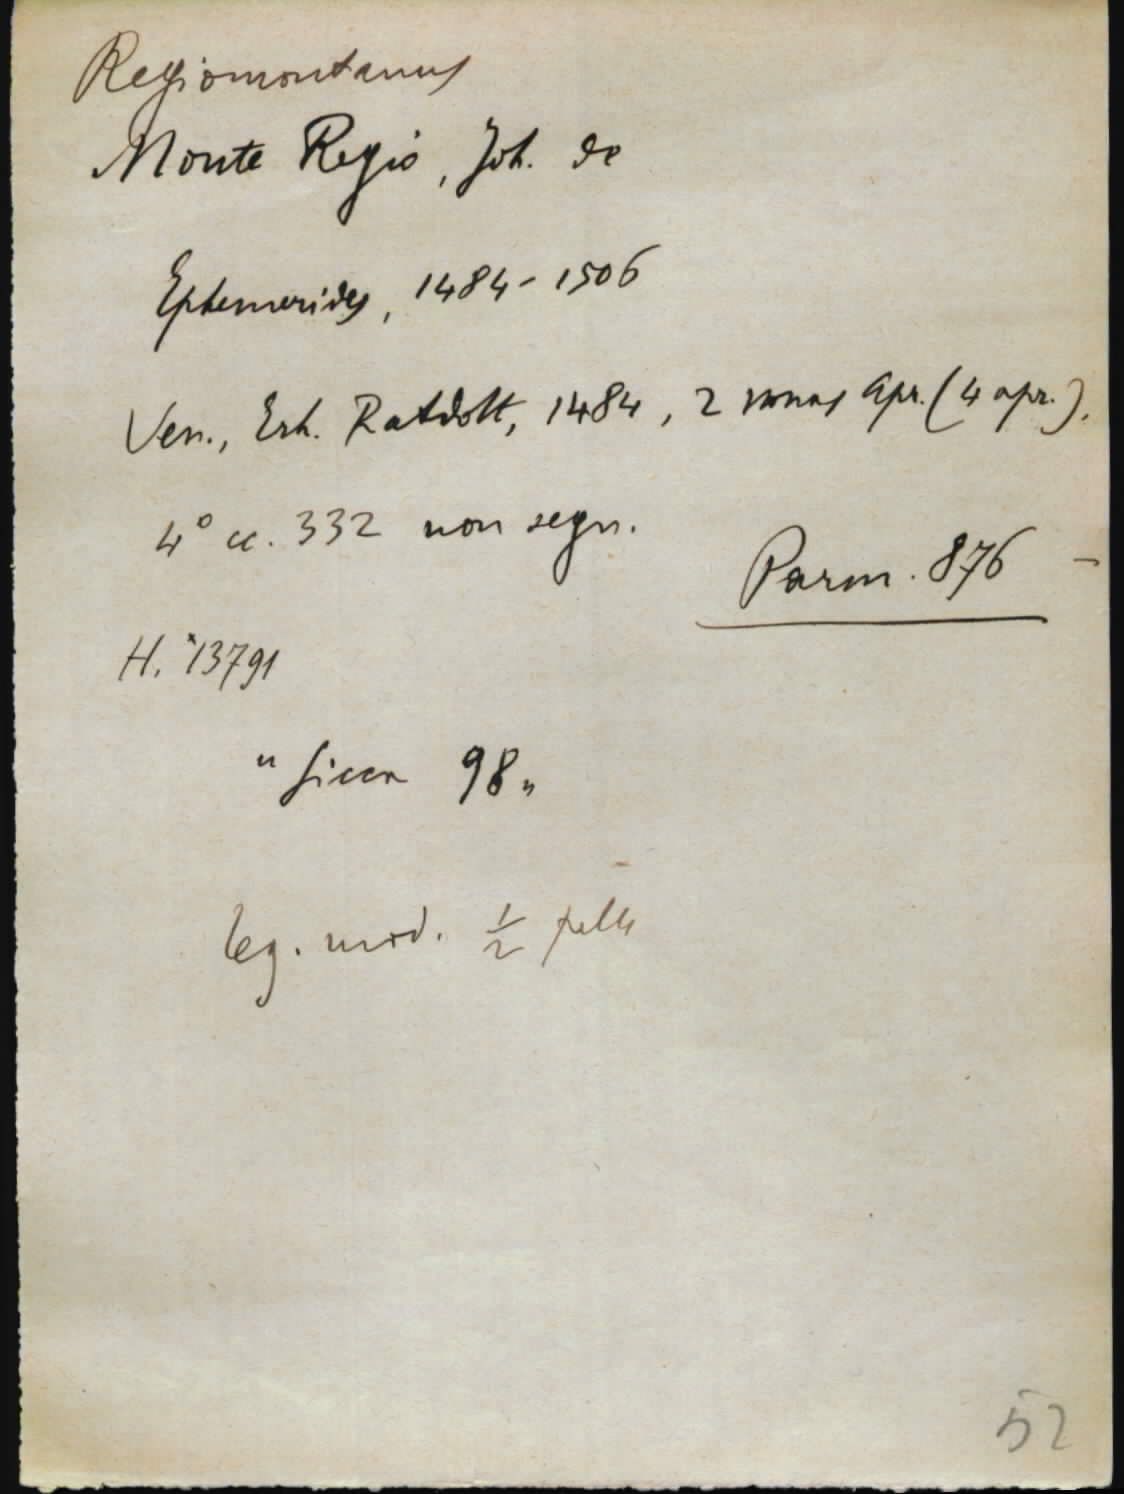 Regiomontanus
Monte Regio, Joh. de
Ephemerides, 1484-1506
Ven., Erh. Ratdolt, 1484, 2 nonas Apr. (4 apr.).
4° cc. 332 non segn.
Parm. 876 -
H. *13791
" sicca 98 "
leg. mod. 1/2 pelle
52